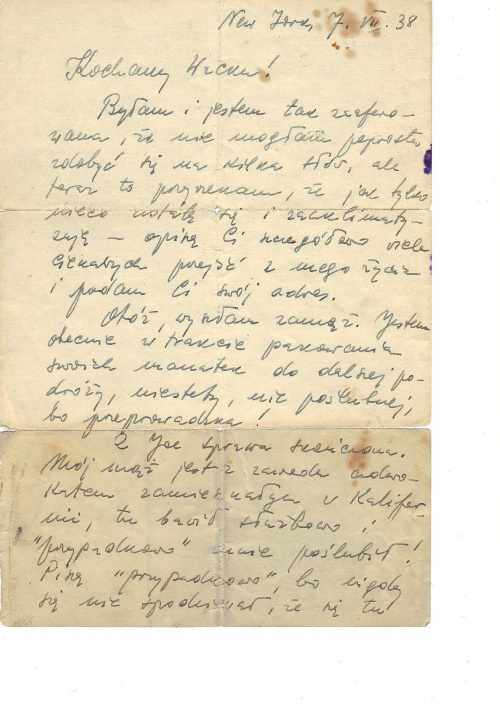 New York, 7. VII. 38
Kochany
Byłam i jestem tak zaafero-
wana, że nie mogłam poprostu
zdobyć się na kilka słów, ale
teraz to przyrzekam, że jak tylko
nieco ustalę się i zaaklimaty-
zuję – opiszę Ci szczegółowo wiele
ciekawych przejść z mego życia
i podam Ci swój adres.
Otóż, wyszłam zamąż. Jestem
obecnie w trakcie pakowania
swoich manatek do dalszej po-
dróży, niestety, nie poślubnej,
bo przeprowadzka!
Z Joe sprawa skończona.
Mój mąż jest z zawodu adwo-
katem zamieszkałym w Kalifor-
nii, tu bawił służbowo i
"przypadkowo" mnie poślubił!
Piszę "przypadkowo", bo nigdy
się nie spodziewał, że się tu